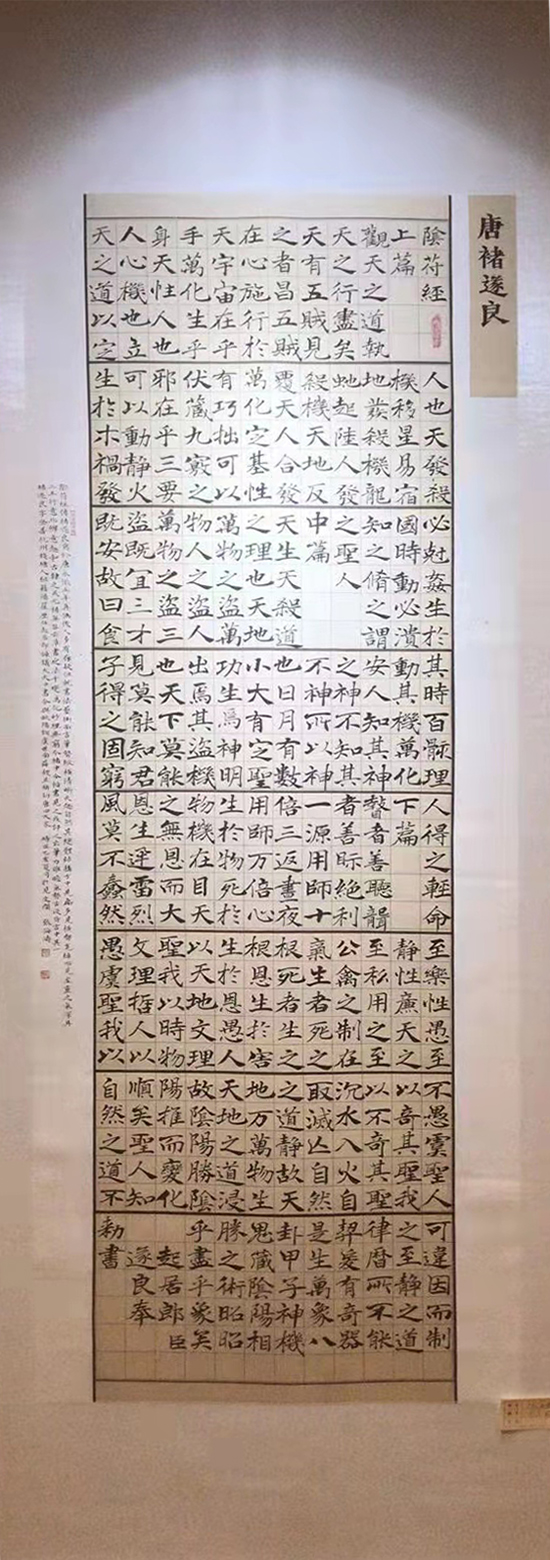 唐褚遂良
陰符經
上篇
觀天之道執
天之行盡矣
天有五賊見
之者昌五賊
在心施行於
天宇宙在乎
手萬化生乎
身天性人也
人心機也立
天之道以定
人也天發殺
機移星易宿
地發殺機龍
虵起陸人發
殺機天地反
覆天人合發
萬化定基性
有巧拙可以
伏藏九竅之
邪在乎三要
可以動靜火
生於木禍發
必尅姦生於
國時動必潰
知之脩之謂
之聖人
中篇
天生天殺道
之理也天地
萬物之盜萬
物人之盜人
萬物之盜三
盜既宜三才
既安故曰食
其時百骸理
動其機萬化
安人知其神
之神不知其
不神所以神
也日月有數
小大有定聖
功生焉神明
出焉其盜機
也天下莫能
見莫能知君
子得之固窮
人得之輕命
下篇
瞽者善聽聾
者善眎絕利
一源用師十
倍三返晝夜
用師万倍心
生於物死於
物機在目天
之無恩而大
恩生迅雷烈
風莫不蠢然
至樂性愚至
靜性廉天之
至私用之至
公禽之制在
氣生者死之
根死者生之
根恩生於害
生於恩愚人
以天地文理
聖我以時物
文理哲人以
愚虞聖我以
不愚虞聖人
以奇其聖我
以不奇其聖
沉水入火自
取滅亡自然
之道靜故天
地万萬物生
天地之道浸
故陰陽勝陰
陽推而變化
順矣聖人知
自然之道不
可違因而制
之至靜之道
律曆所不能
契爰有奇器
是生萬象八
卦甲子神機
鬼藏陰陽相
勝之術昭昭
乎盡乎象矣
起居郎臣
遂良奉
勅書